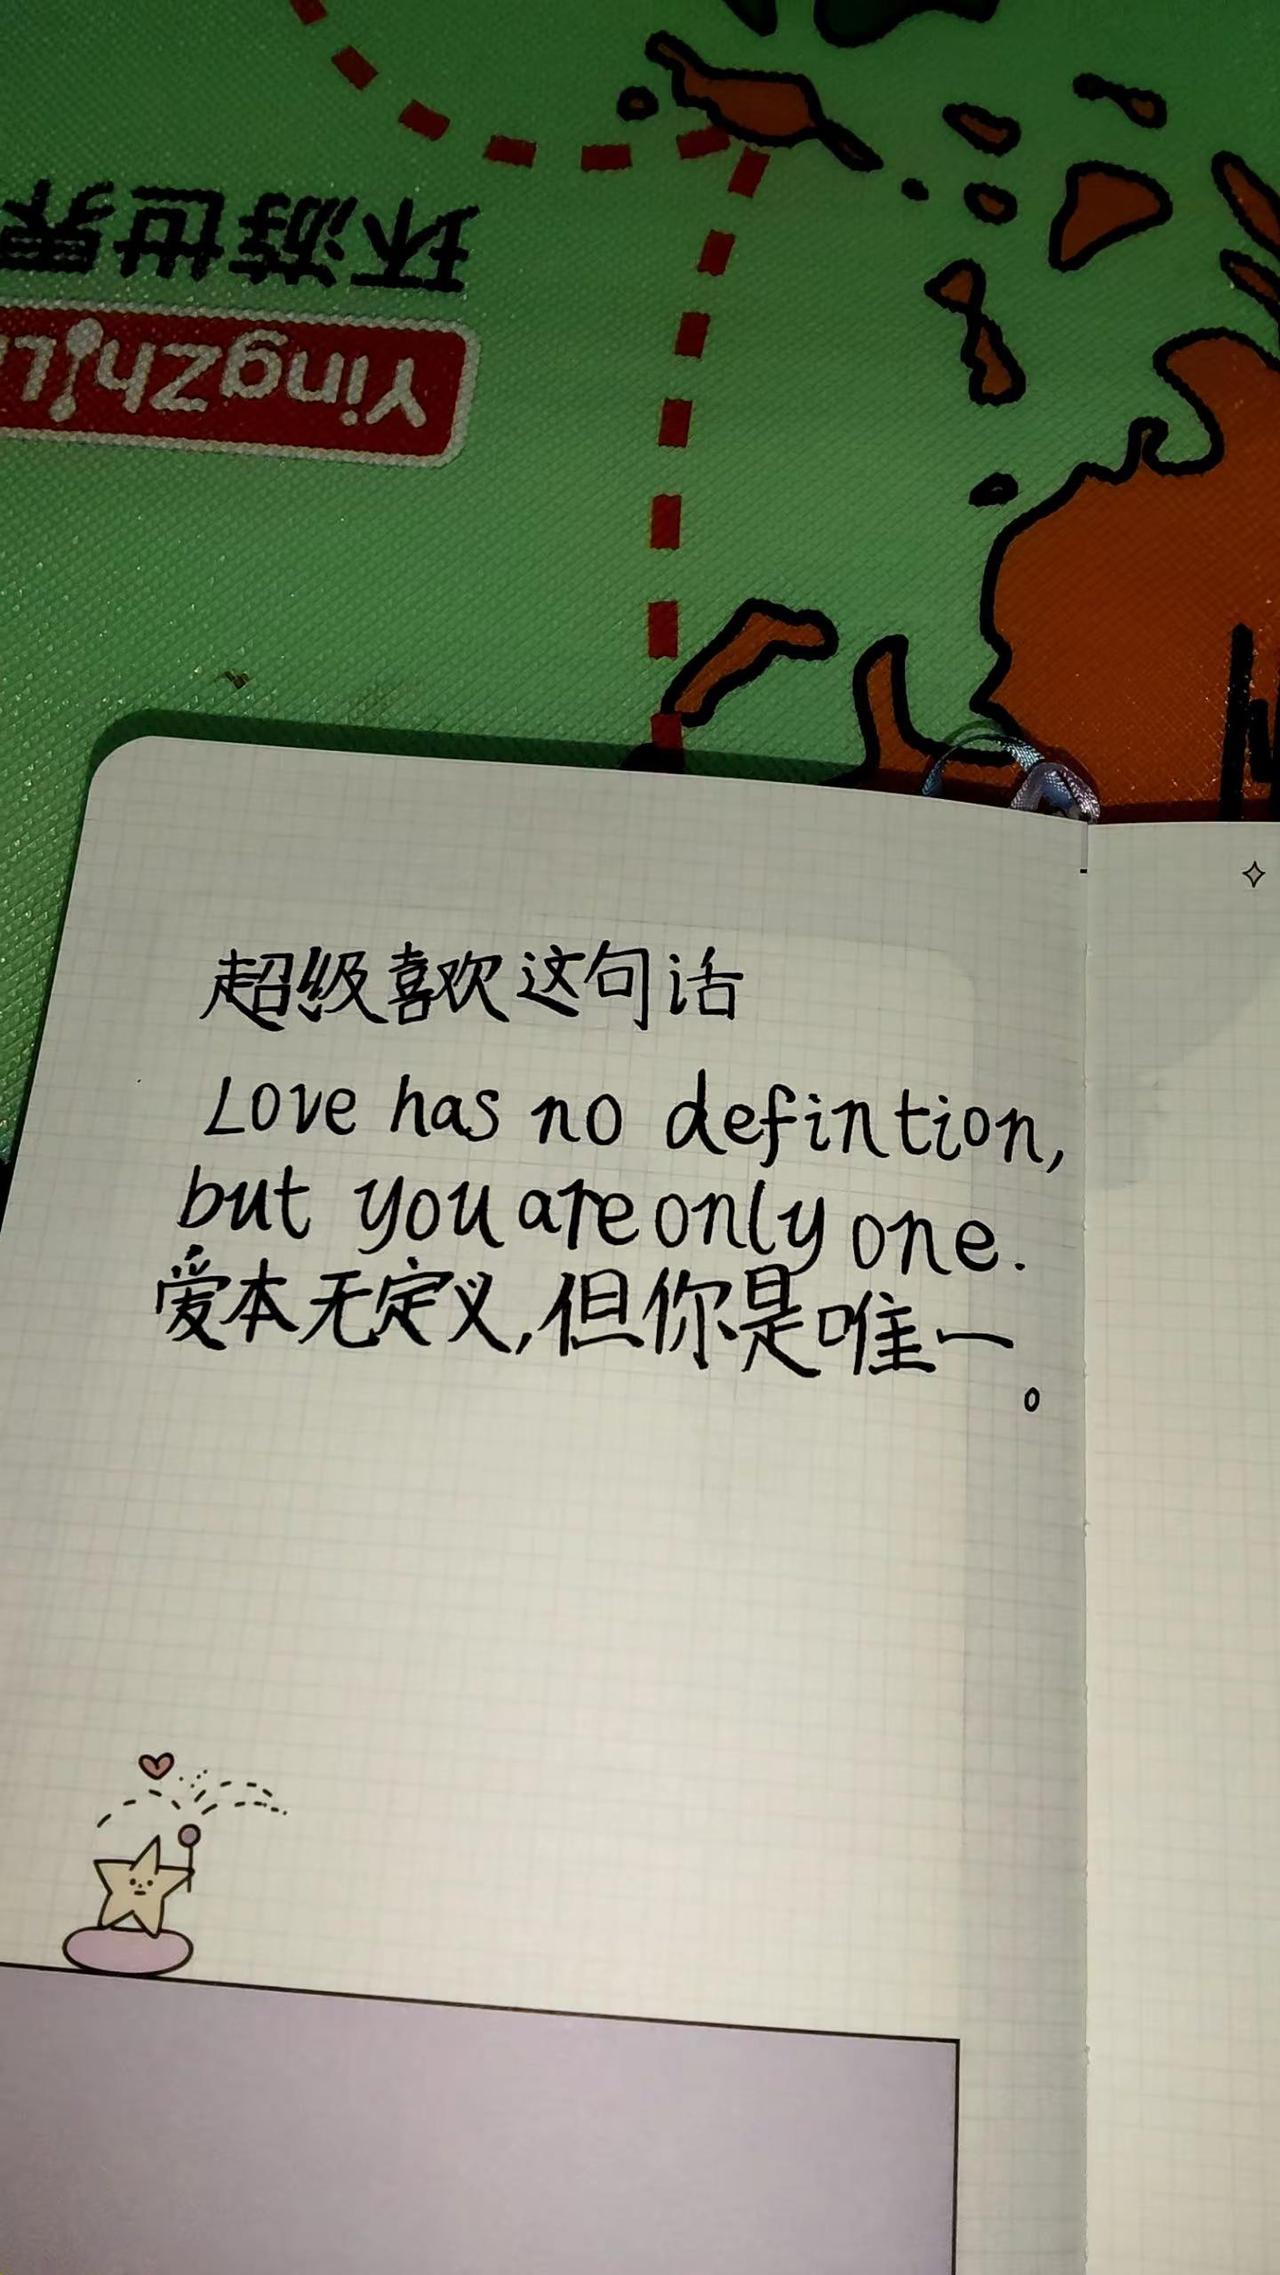 环游世界
YingZhiL
超级喜欢这句话
Love has no defintion,
but you are only one.
爱本无定义,但你是唯一。